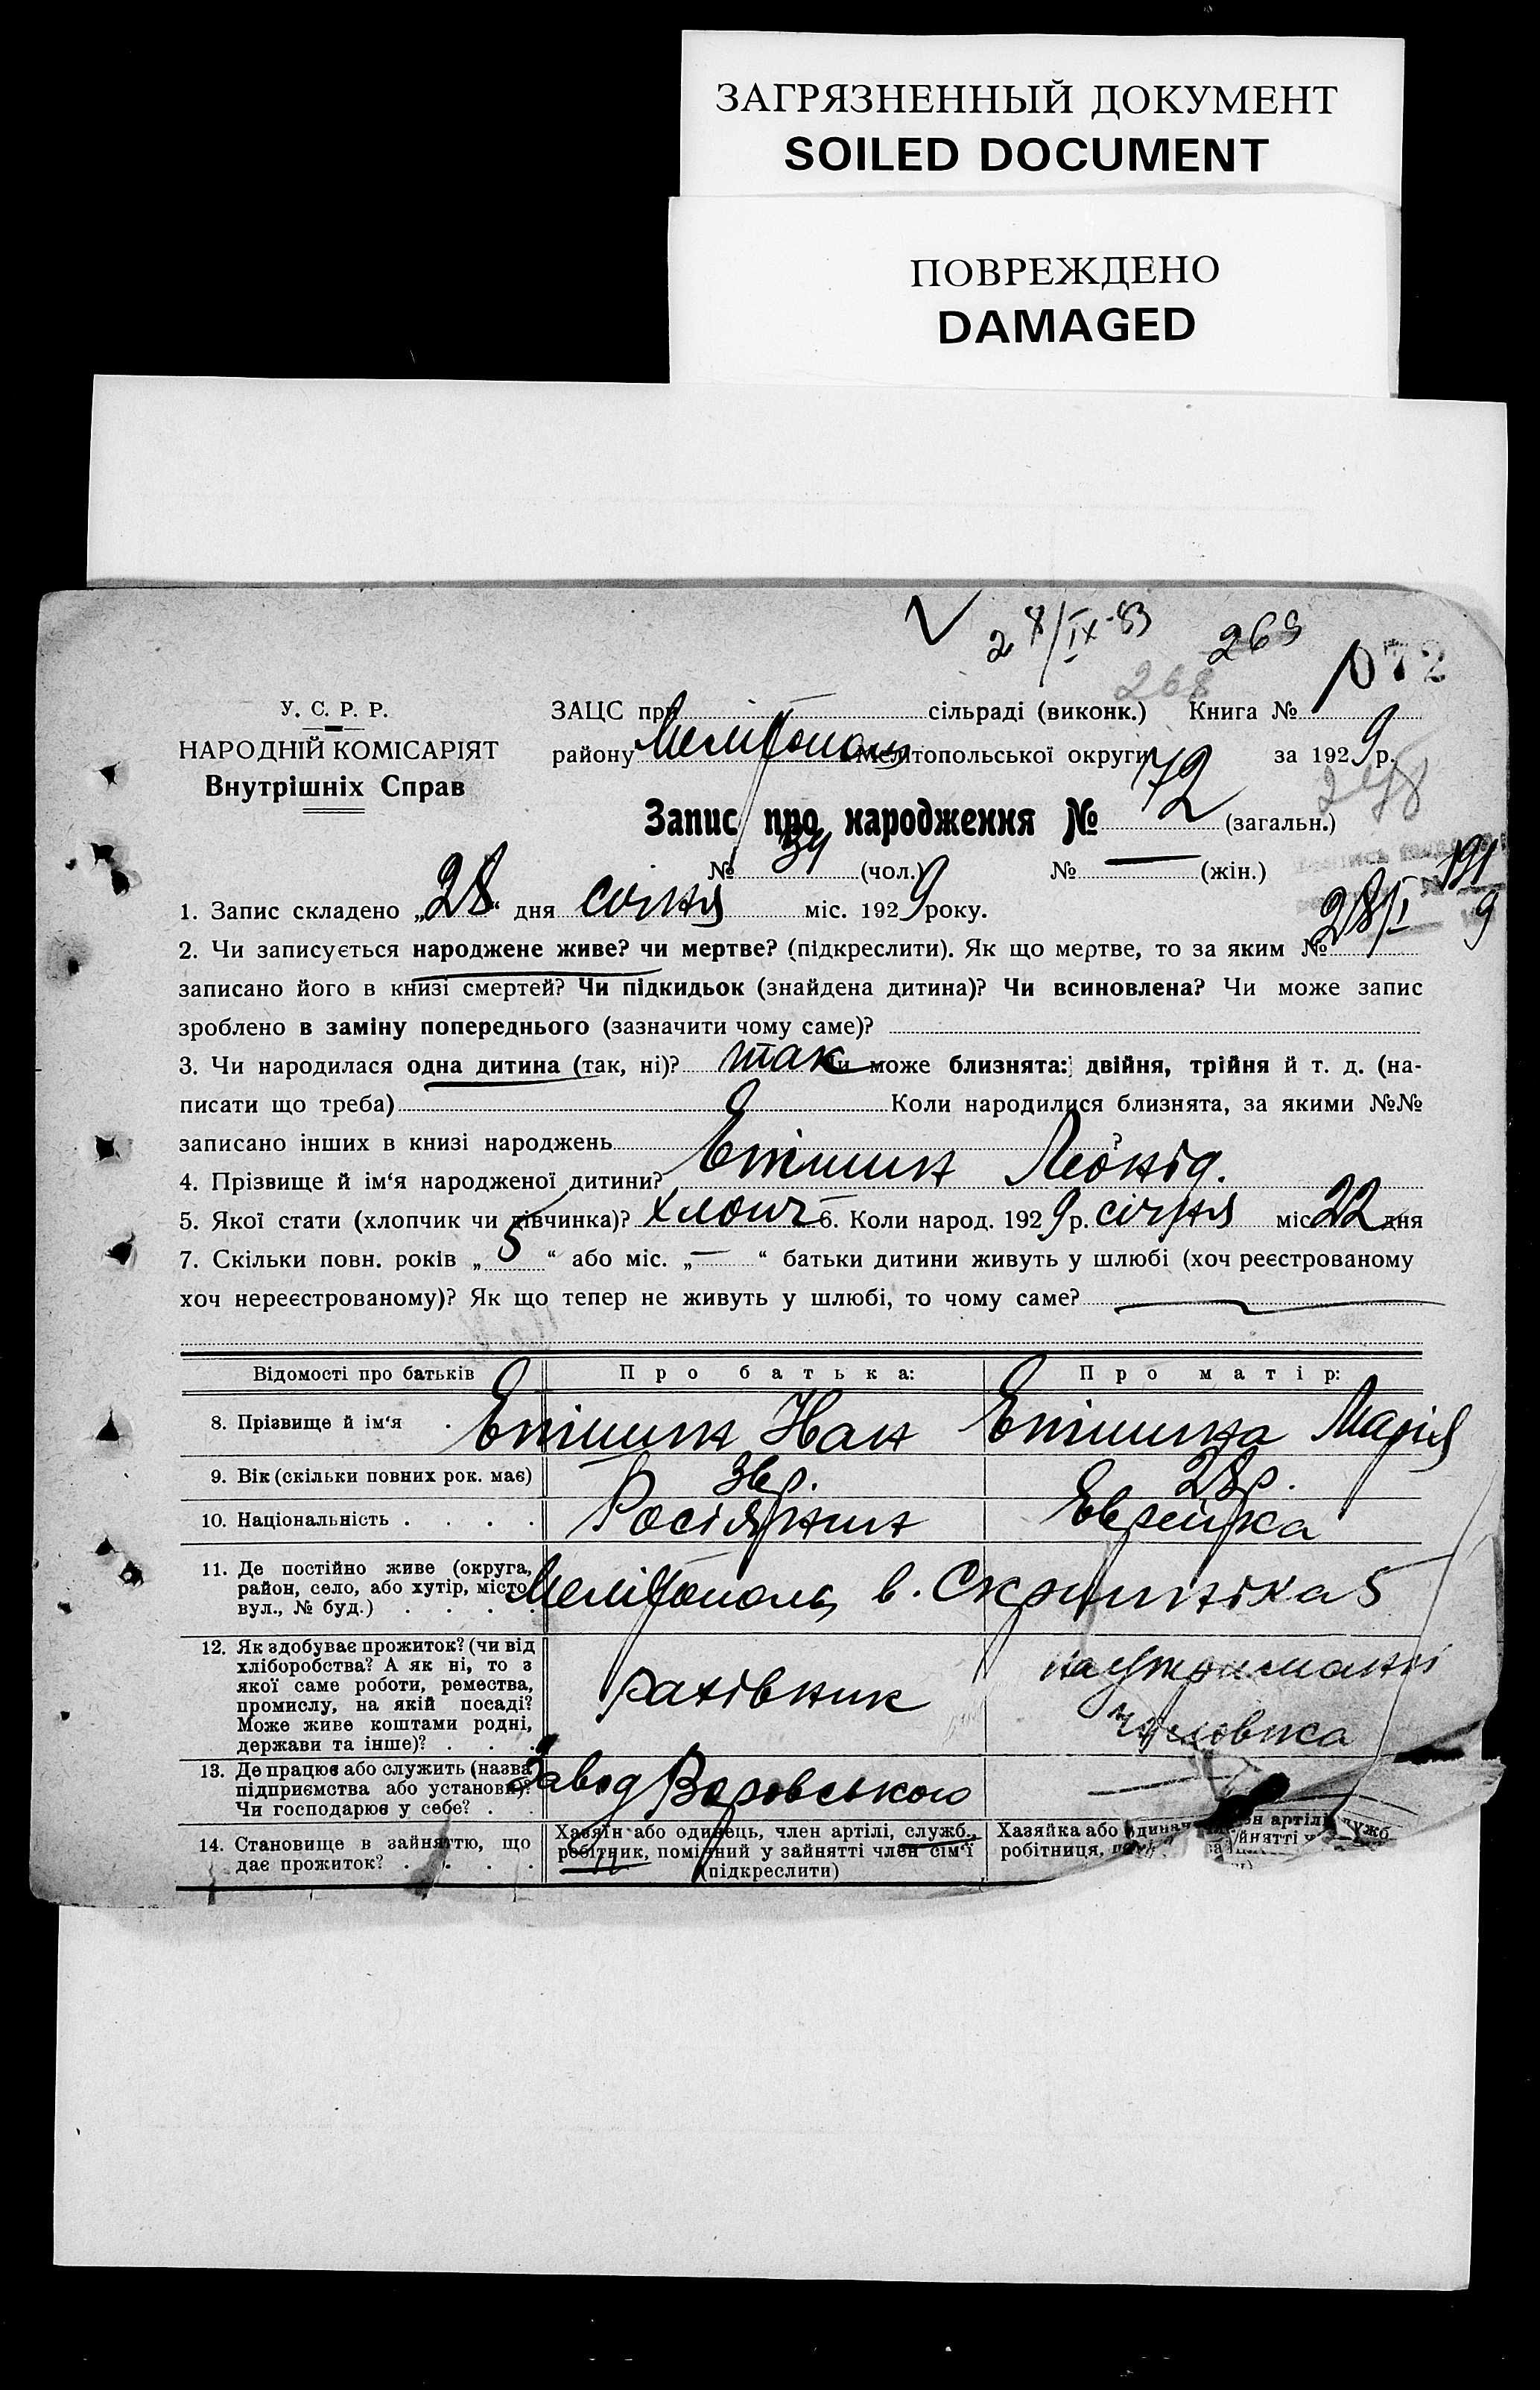 ЗАГРЯЗНЕННЫЙ ДОКУМЕНТ
SOILED DOCUMENT
ПОВРЕЖДЕНО
DAMAGED
28/IX-83 269
268 072
У. С. Р. Р.
НАРОДНІЙ КОМІСАРІЯТ
Внутрішніх Справ
ЗАЦС при сільраді (виконк.) Книга №
району Мелітополь Мелітопольської округи за 1929 р.
Запис про народження № 72 (загальн.)
№ 34 (чол.) № — (жін.)
1. Запис складено „28“ дня січня міс. 1929 року.
28/I
2. Чи записується народжене живе? чи мертве? (підкреслити). Як що мертве, то за яким №
записано його в книзі смертей? Чи підкидьок (знайдена дитина)? Чи всиновлена? Чи може запис
зроблено в заміну попереднього (зазначити чому саме)?
3. Чи народилася одна дитина (так, ні)? так Чи може близнята: двійня, трійня й т. д. (на-
писати що треба) Коли народилися близнята, за якими №№
записано інших в книзі народжень ?
4. Прізвище й ім‘я народженої дитини? Етішин Леонід.
5. Якої стати (хлопчик чи дівчинка)? хлопч 6. Коли народ. 1929 р. січня міс 22 дня
7. Скільки повн. років „5“ або міс. „—“ батьки дитини живуть у шлюбі (хоч реєстрованому
хоч нереєстрованому)? Як що тепер не живуть у шлюбі, то чому саме? —
Відомості про батьків Про батька: Про матір:
8. Прізвище й ім‘я Етішин Іван Етішина Марія
9. Вік (скільки повних рок. має) 28 р.
10. Національність Росіянин Еврейка
11. Де постійно живе (округа,
район, село, або хутір, місто,
вул., № буд.) Мелітополь в. Скрипніка 5
12. Як здобуває прожиток? (чи від
хліборобства? А як ні, то з
якої саме роботи, ремества,
промислу, на якій посаді?
Може живе коштами родні,
держави та інше)? рахівник на утриманні чоловіка
13. Де працює або служить (назва
підприємства або установи)?
Чи господарює у себе? Завод Воровського —
14. Становище в зайняттю, що
дає прожиток?
Хазяїн або одинець, член артілі, служб.,
робітник, помічний у зайнятті член сім‘ї
(підкреслити)
Хазяйка або артілі
робітниця,